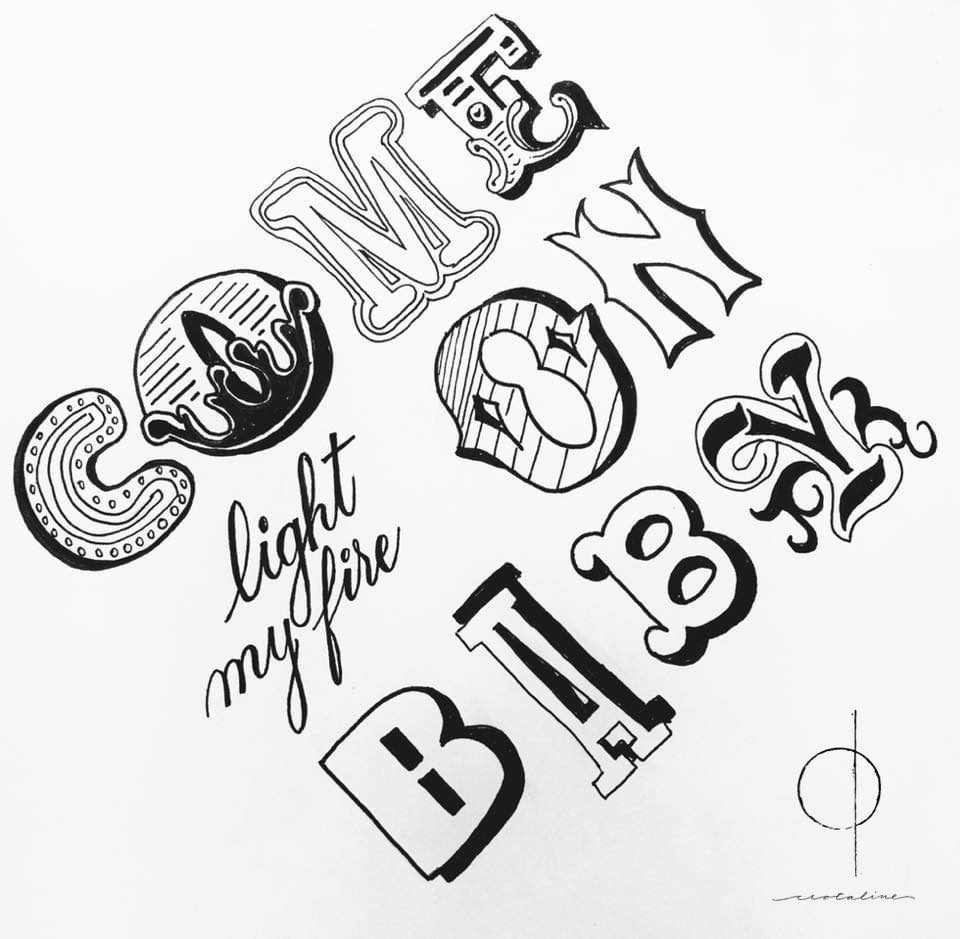 COME
ON
BABY
light
my fire
crotaline